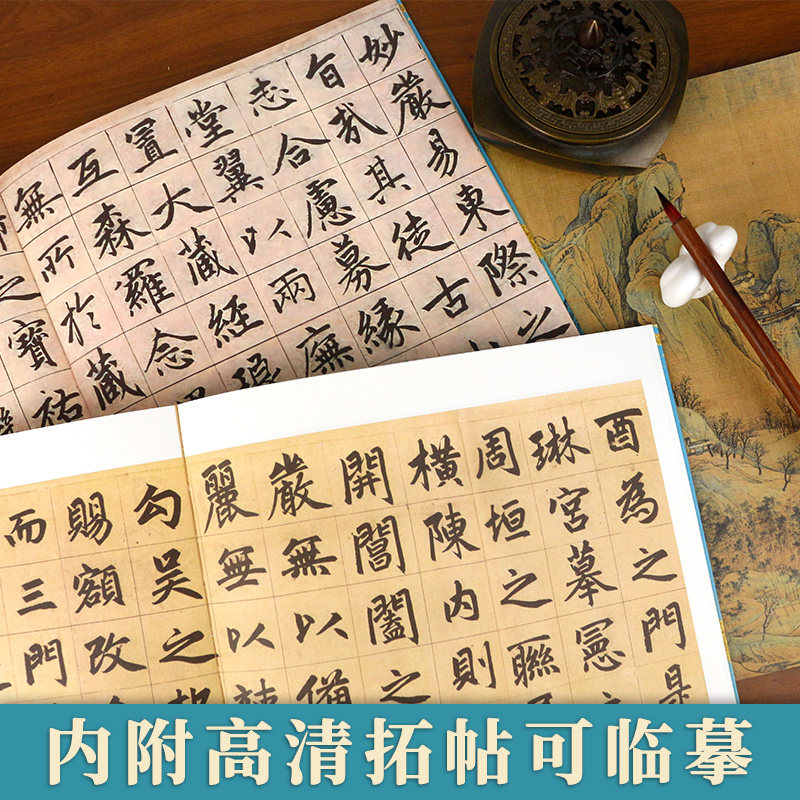 妙嚴易東際之
旨哉其徒古山
志合慮募緣
堂翼以兩廡
置大藏經琅
互森羅念
無所於藏
之寶祐
酉為之門是
琳宮摹憲
周垣之聯
橫陳內則
開閶闔之
嚴無以備
麗無以鼓
勾吳之
賜額改
而三門
内附高清拓帖可临摹